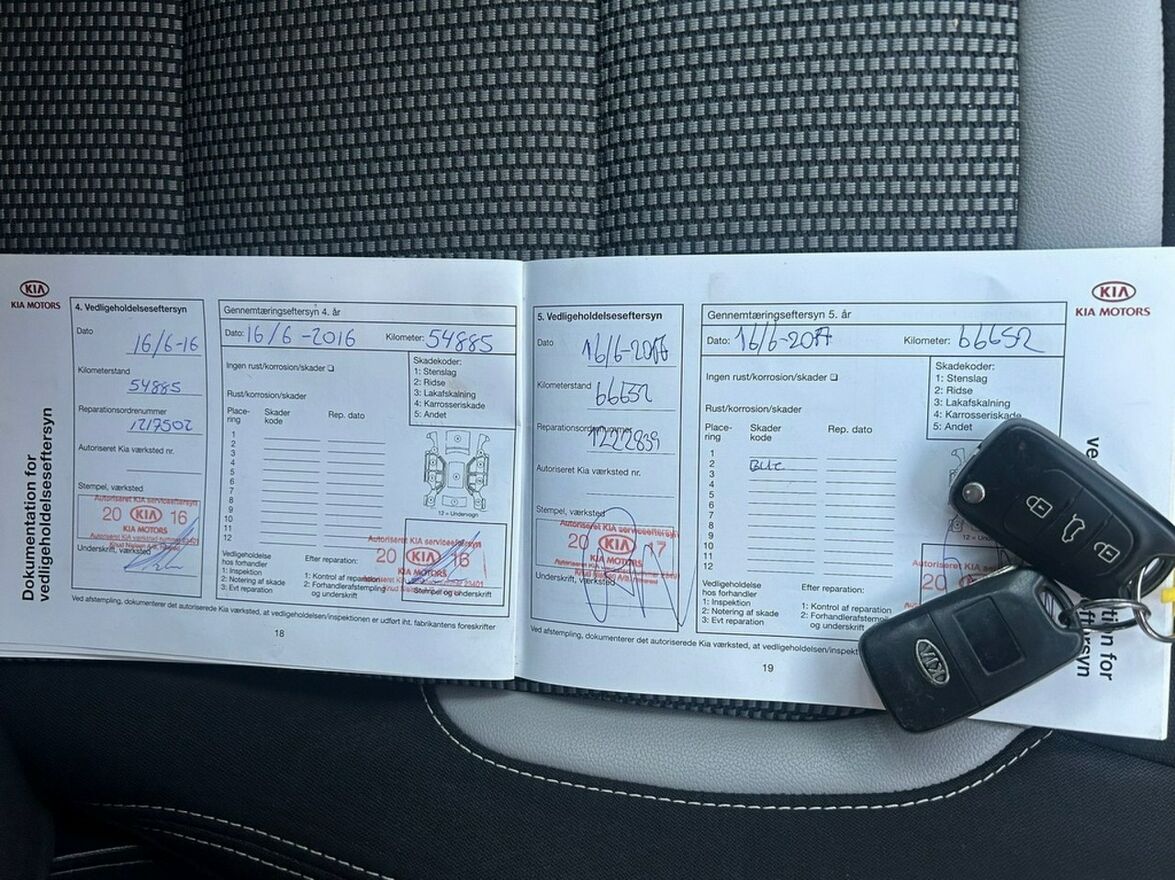 KIA
KIA MOTORS
Dokumentation for
vedligeholdelseseftersyn
4. Vedligeholdelseseftersyn
Dato
16/6-16
Kilometerstand
54885
Reparationsordrenummer
1217502
Autoriseret Kia værksted nr.
Stempel, værksted
Autoriseret KIA serviceeftersyn
20 KIA 16
KIA MOTORS
Underskrift, værksted
Gennemtæringseftersyn 4. år
Dato: 16/6-2016 Kilometer: 54885
Ingen rust/korrosion/skader
Skadekoder:
1: Stenslag
2: Ridse
3: Lakafskalning
4: Karrosseriskade
5: Andet
Rust/korrosion/skader
Place-
ring
Skader
kode
Rep. dato
1
2
3
4
5
6
7
8
9
10
11
12
12 = Undervogn
Vedligeholdelse
hos forhandler
1: Inspektion
2: Notering af skade
3: Evt reparation
Efter reparation:
1: Kontrol af reparation
2: Forhandlerafstempling
og underskrift
Autoriseret KIA serviceeftersyn
20 KIA 16
KIA MOTORS
Stempel og underskrift
Ved afstempling, dokumenterer det autoriserede Kia værksted, at vedligeholdelsen/inspektionen er udført iht. fabrikantens forskrifter
18
5. Vedligeholdelseseftersyn
Dato
Kilometerstand
66652
Reparationsordrenummer
1222839
Autoriseret Kia værksted nr.
Stempel, værksted
Autoriseret KIA serviceeftersyn
20 KIA 17
KIA MOTORS
Underskrift, værksted
Gennemtæringseftersyn 5. år
Dato: 16/6-2017 Kilometer: 66652
Ingen rust/korrosion/skader
Skadekoder:
1: Stenslag
2: Ridse
3: Lakafskalning
4: Karrosseriskade
5: Andet
Rust/korrosion/skader
Place-
ring
Skader
kode
Rep. dato
1
2
3
4
5
6
7
8
9
10
11
12
Vedligeholdelse
hos forhandler
1: Inspektion
2: Notering af skade
3: Evt reparation
Efter reparation:
1: Kontrol af reparation
og underskrift
20
Ved afstempling, dokumenterer det autoriserede Kia værksted, at
19
KIA
KIA MOTORS
KIA